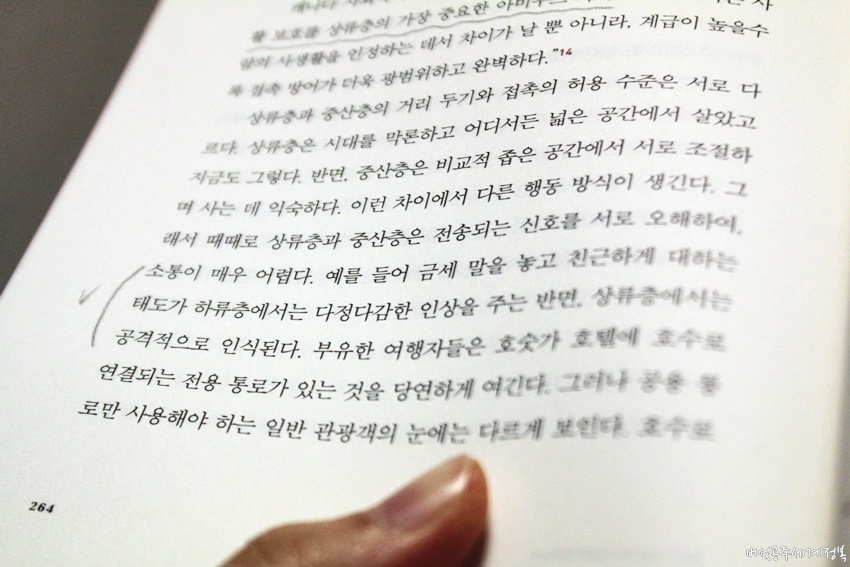 활 보호를 상류층의 가장 중요한 아비투스
람의 사생활을 인정하는 데서 차이가 날 뿐 아니라, 계급이 높을수
록 접촉 방어가 더욱 광범위하고 완벽하다.”14
상류층과 중산층의 거리 두기와 접촉의 허용 수준은 서로 다
르다. 상류층은 시대를 막론하고 어디서든 넓은 공간에서 살았고
지금도 그렇다. 반면, 중산층은 비교적 좁은 공간에서 서로 조절하
며 사는 데 익숙하다. 이런 차이에서 다른 행동 방식이 생긴다. 그
래서 때때로 상류층과 중산층은 전송되는 신호를 서로 오해하여,
소통이 매우 어렵다. 예를 들어 금세 말을 놓고 친근하게 대하는
태도가 하류층에서는 다정다감한 인상을 주는 반면, 상류층에서는
공격적으로 인식된다. 부유한 여행자들은 호숫가 호텔에 호수로
연결되는 전용 통로가 있는 것을 당연하게 여긴다. 그러나 공용 통
로만 사용해야 하는 일반 관광객의 눈에는 다르게 보인다. 호수로
264
버섯공주세계정복